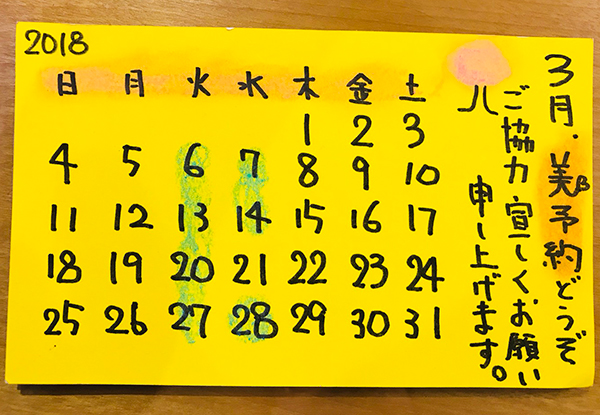 2018
日 月 火 水 木 金 土
1 2 3
4 5 6 7 8 9 10
11 12 13 14 15 16 17
18 19 20 21 22 23 24
25 26 27 28 29 30 31
3月.美予約どうぞ
ご協力宜しくお願い
申し上げます。